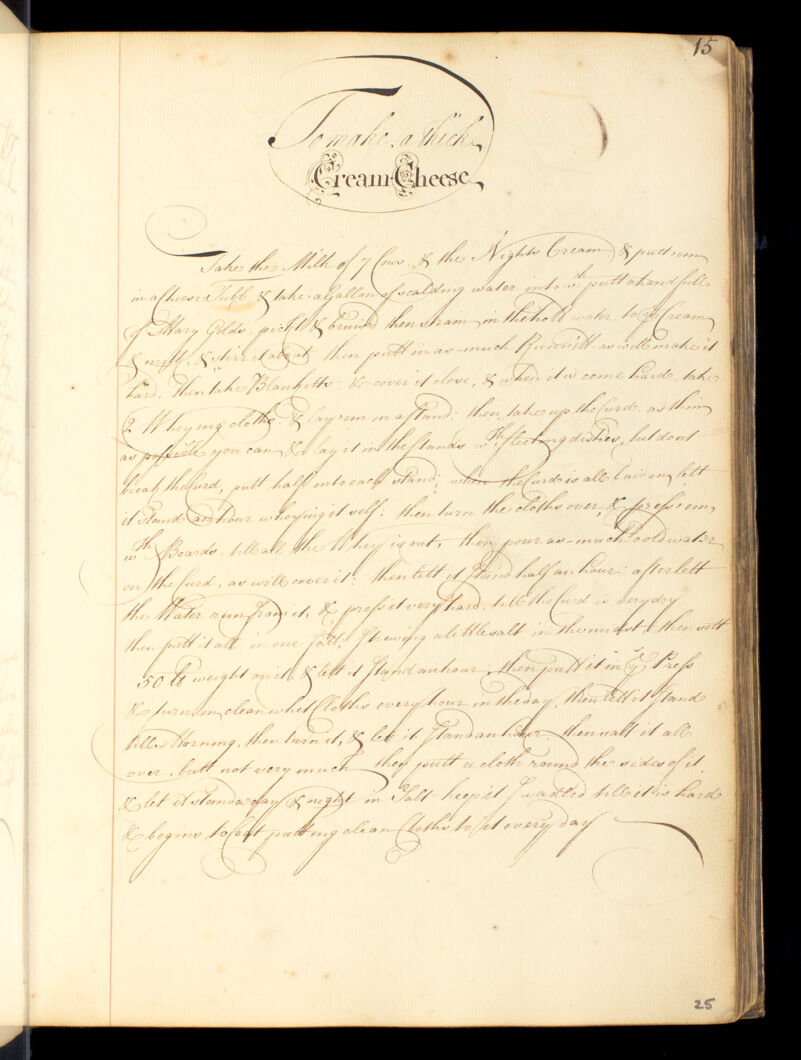 15
To make a thick
Cream Cheese
Take the Milk of 7 Cows & the Nights Cream & putt 'em
in a Cheese Tubb & take a Gallon of scalding water into wch putt a handfull
of Mary Golds pickt & bruis'd then strain in the hott water to ye Cream
& stirr it about then putt in as much Runnett as will make it
hard, then take Blanketts & cover it close, & when it is come hard, take
2 Wheying cloths & lay 'em in a stand: then take up the Curd as thin
as possible you can & lay it in the stands wth fleeting dishes, but dont
break the Curd, putt half into each stand; when the Curd is all laid in lett
it stand an hour wheying it self: then turn the cloths over, & press 'em
wth Boards till all the Whey is out, then pour as much cold water
on the Curd, as will cover it: then lett it stand half an hour: after lett
the Water run from it, & press it very hard till the Curd is very dry
then putt it all in one fatt, strewing a little salt in the midst, then sett
50 lb weight on it & lett it stand an hour, then putt it in ye Press
& turn in clean whet Cloths every hour in the day, then lett it stand
till Morning, then turn it, & let it stand an hour: then salt it all
over, butt not very much then putt a cloth round the sides of it
& let it stand a day & night in Salt keep it swadled till it is hard
& begins to Coat putting clean Cloths to it every day
25